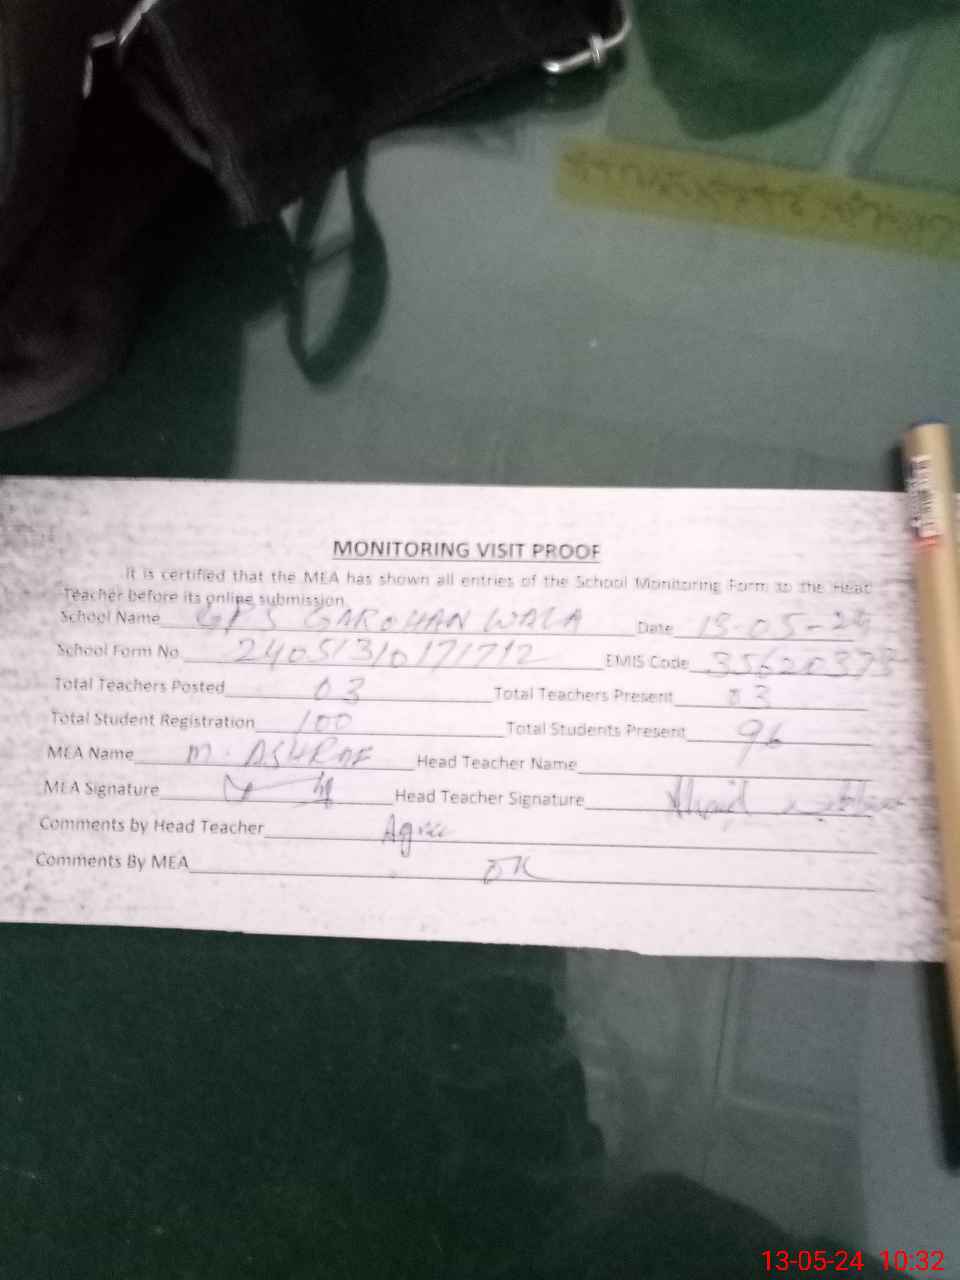 MONITORING VISIT PROOF
It is certified that the MEA has shown all entries of the School Monitoring Form to the Head
Teacher before its online submission.
School Name GPS GAROHAN WALA Date 13-05-24
School Form No. 24051310171712 EMIS Code 35620373
Total Teachers Posted 03 Total Teachers Present 03
Total Student Registration 100 Total Students Present 96
MEA Name M. ASHRAF Head Teacher Name
MEA Signature Head Teacher Signature
Comments by Head Teacher Agree
Comments By MEA OK
13-05-24 10:32